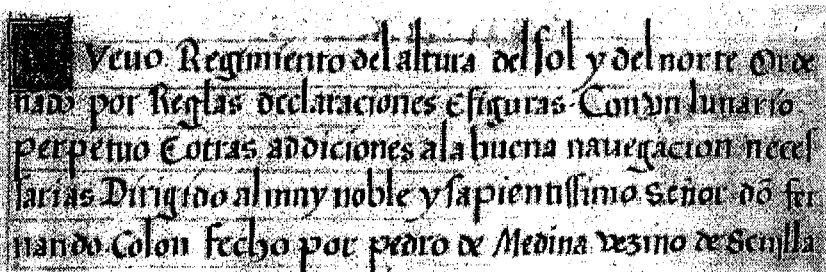 Nuevo Regimiento del altura del sol y del norte Orde
nado por Reglas declaraciones E figuras. Con vn lunario
perpetuo E otras addiciones a la buena nauegacion neces
sarias Dirigido al muy noble y sapientissimo Señor dõ fer
nando Colon fecho por pedro de Medina vezino de Seuilla